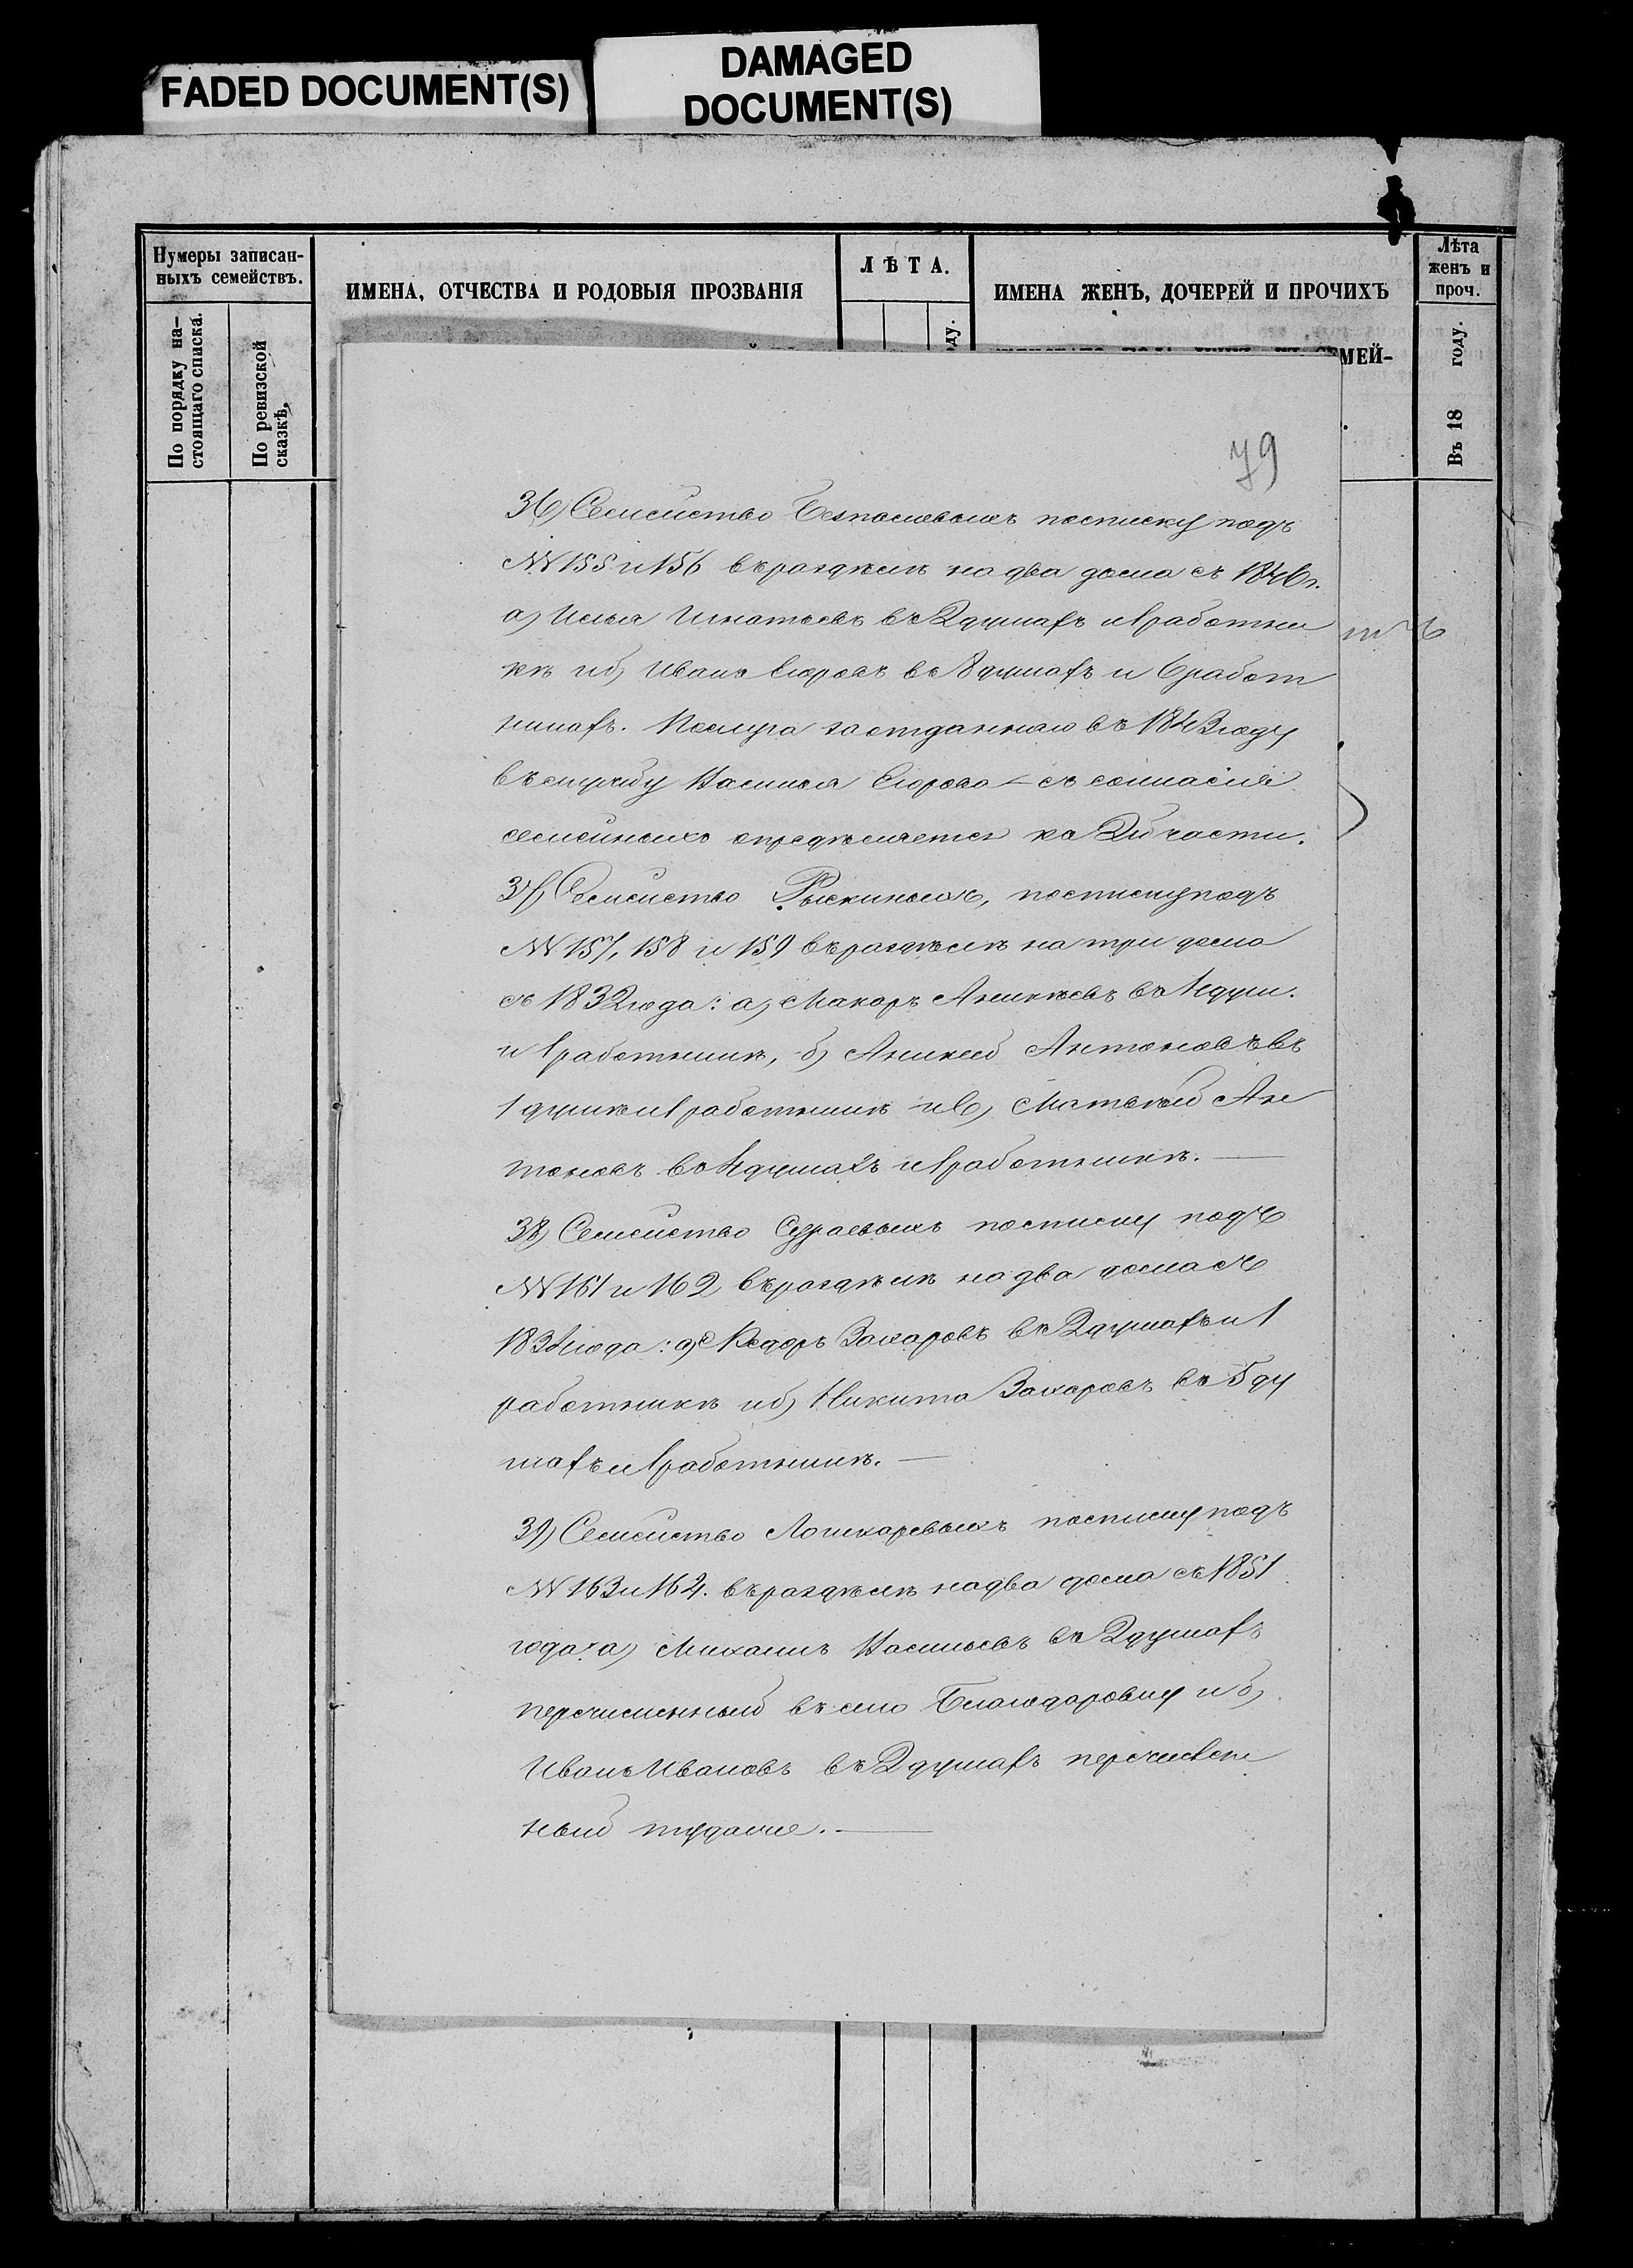 FADED DOCUMENT(S)
DAMAGED
DOCUMENT(S)
Нумеры записан-
ныхъ семействъ.
По порядку на-
стоящаго списка.
По ревизской
сказкѣ.
ИМЕНА, ОТЧЕСТВА И РОДОВЫЯ ПРОЗВАНІЯ
ЛѢТА.
ду.
ИМЕНА ЖЕНЪ, ДОЧЕРЕЙ И ПРОЧИХЪ
МЕЙ-
Лѣта
женъ и
проч.
Въ 18 году.
79
36) Семейство Безпаловыхъ посписку подъ
№№ 155 и 156 въ раздѣлѣ на два дома съ 1846 г.
а) Илья Игнатьевъ въ 2 душахъ и 1 работни
кѣ и б) Иванъ Егоровъ въ 8 душахъ и 6 работ
никахъ. Послуга за отданнаго въ 1843 году
въ службу Василья Егорова — съ согласія
семейныхъ опредѣляется ко 2й части.
37) Семейство Рыскиныхъ, посписку подъ
№№ 157, 158 и 159 въ раздѣлѣ на три дома
съ 1832 года: а) Макаръ Аникѣевъ въ 4 душ.
и 1 работникѣ, б) Аникей Антоновъ въ
1 душѣ и 1 работникѣ и в) Матвѣй Ан
тоновъ въ 4 душахъ и 1 работникѣ. —
38) Семейство посписку подъ
№№ 161 и 162 въ раздѣлѣ на два дома съ
1834 года: а) Ѳедоръ Захаровъ въ 2 душахъ и 1
работникѣ и б) Никита Захаровъ въ 5 ду
шахъ и 1 работникѣ. —
39) Семейство Лошкаревыхъ посписку подъ
№№ 163 и 164. въ раздѣлѣ на два дома съ 1851
года: а) Михаилъ Васильевъ въ 2 душахъ
перечисленный въ село Благодаровку и б)
Иванъ Ивановъ въ 2 душахъ перечислен
ный тудаже. —